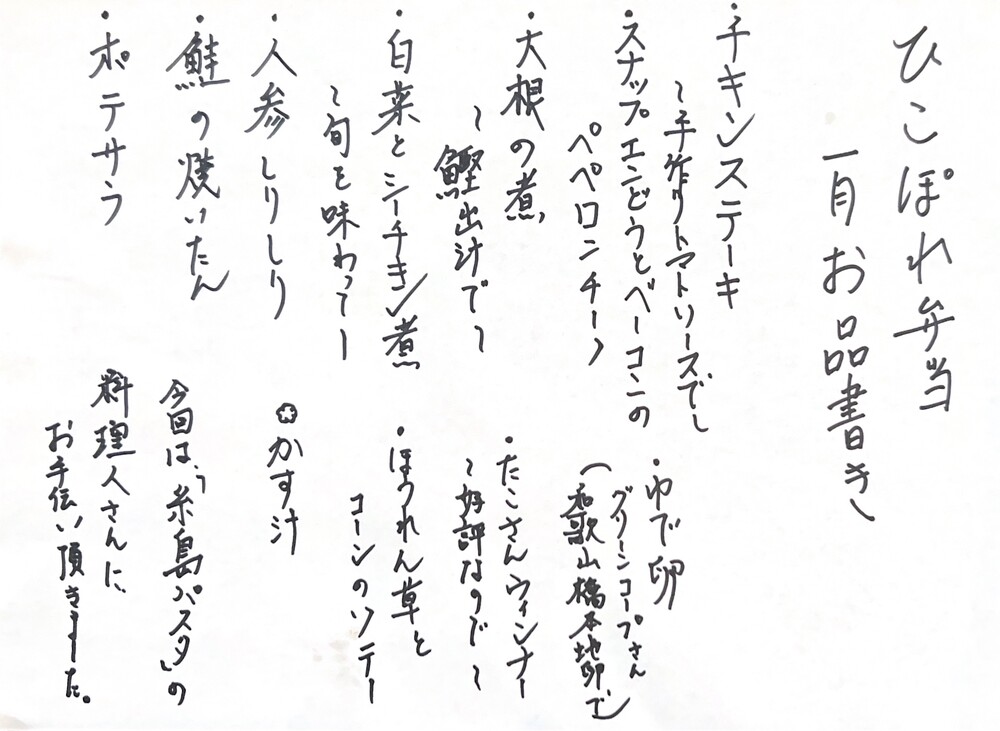 ひこぽれ弁当
一月お品書き
・チキンステーキ
〜手作りトマトソースで〜
・スナップエンどうとベーコンの
ペペロンチーノ
・大根の煮
〜鰹出汁で〜
・白菜とシーチキン煮
〜旬を味わって〜
・人参しりしり
・鮭の焼いたん
・ポテサラ
・ゆで卵
グリーンコープさん
(和歌山橋本地卵で)
・たこさんウィンナー
〜好評なので〜
・ほうれん草と
コーンのソテー
かす汁
今回は、「糸島パスタ」の
料理人さんに、
お手伝い頂きました。